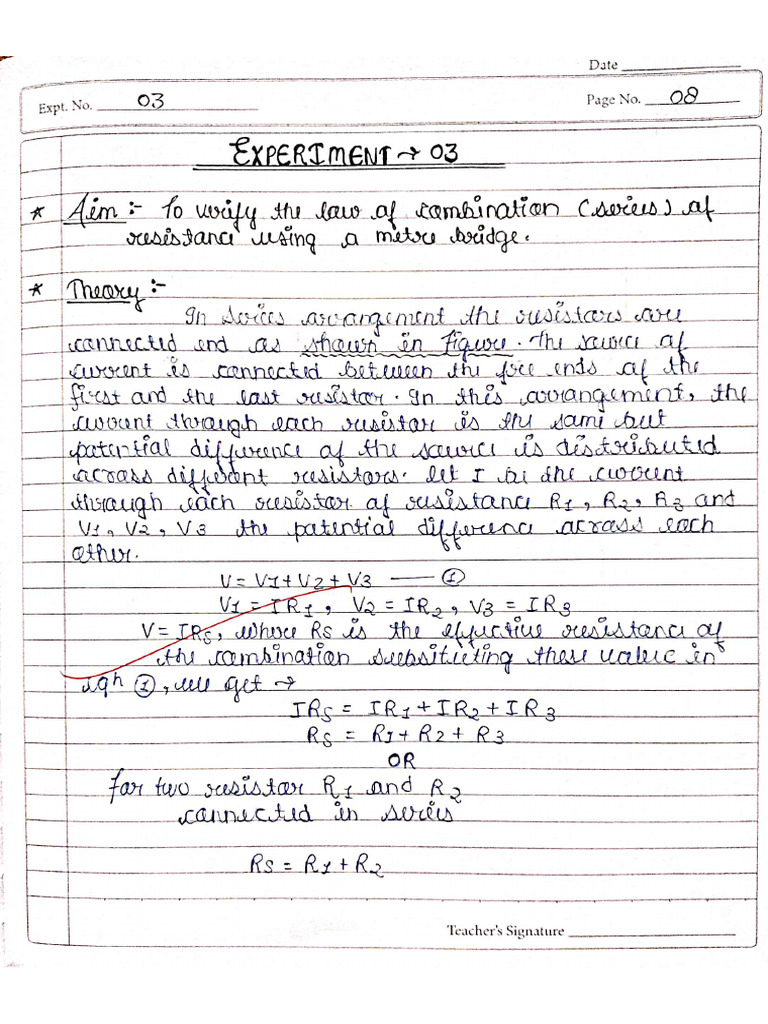 Date
Expt. No. 03
Page No. 08
EXPERIMENT → 03
* Aim :- To verify the law of combination (series) of
resistance using a metre bridge.
* Theory :-
In series arrangement the resistors are
connected end as shown in figure. The source of
current is connected between the free ends of the
first and the last resistor. In this arrangement, the
current through each resistor is the same but
potential difference of the source is distributed
across different resistors. let I be the current
through each resistor of resistance R1, R2, R3 and
V1, V2, V3 the potential difference across each
other.
V = V1 + V2 + V3 — ①
V1 = IR1, V2 = IR2, V3 = IR3
V = IRs, where Rs is the effective resistance of
the combination subsituting these value in
eqn ①, we get →
IRs = IR1 + IR2 + IR3
Rs = R1 + R2 + R3
OR
for two resistor R1 and R2
connected in series
Rs = R1 + R2
Teacher's Signature